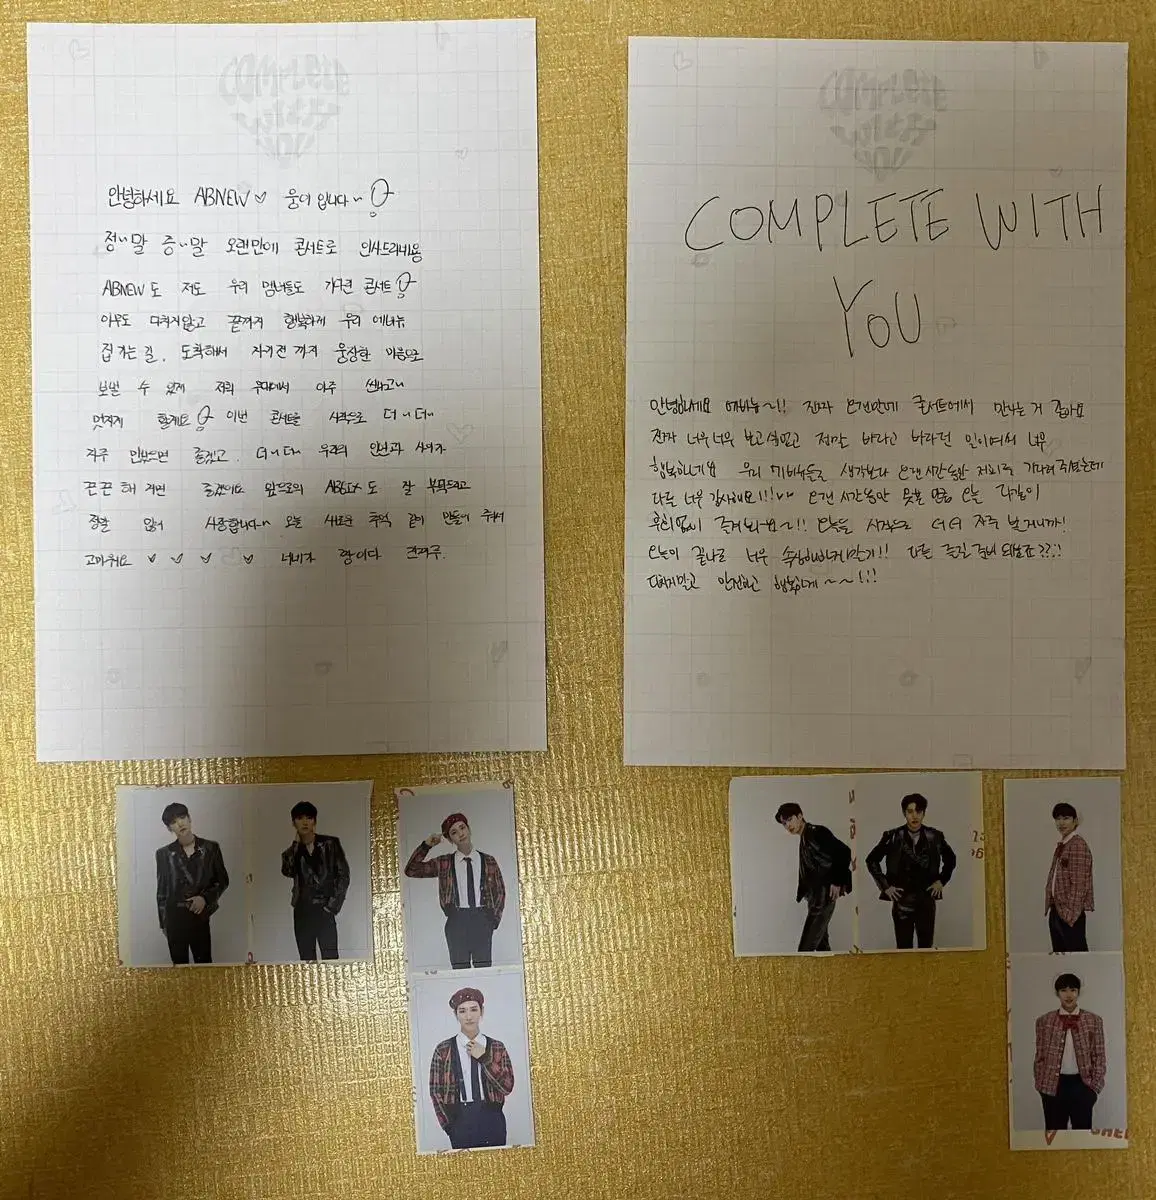 COMPLETE
WITH
YOU
안녕하세요 ABNEW♡ 웅이입니다~
정~말 증~말 오랜만에 콘서트로 인사드리네용
ABNEW도 저도 우리 멤버들도 기다린 콘서트
아무도 다치지않고 끝까지 행복하게 우리 에비뉴
집 가는 길, 도착해서 자기전까지 웅장한 마음으로
보낼 수 있게 저희 무대에서 아주 씬나고~
멋지게 할게요 이번 콘서트를 시작으로 더~더~
자주 만났으면 좋겠고, 더~더~ 우리의 인연과 사이가
끈끈해지면 좋겠어요 앞으로의 AB6IX도 잘 부탁드리고
정말 많이 사랑합니다~ 오늘 새로운 추억 같이 만들어 줘서
고마워요 ♡ ♡ ♡ ♡
COMPLETE
WITH
YOU
COMPLETE WITH
YOU
안녕하세요 에비뉴~!! 진짜 오랜만에 콘서트에서 만나는 거 같아요
진짜 너무너무 보고싶었고 정말 바라고 바라던 일이여서 너무
행복하네요 우리 에비뉴들 생각보다 오랜시간동안 저희를 기다려주셨는데
다들 너무 감사해요!!! 오랜 시간동안 못본 만큼 오늘 다같이
후회없이 즐겨봐요~!! 오늘을 시작으로 더더 자주 볼거니까!
오늘이 끝나도 너무 속상해하지말기!! 다들 즐길준비 되셨죠??!!
다치지말고 안전하고 행복하게~~!!!